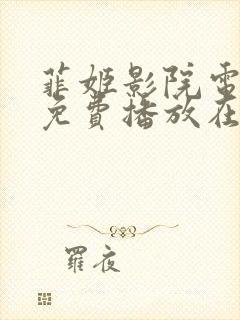 菲姬影院电
免费播放在
罗夜